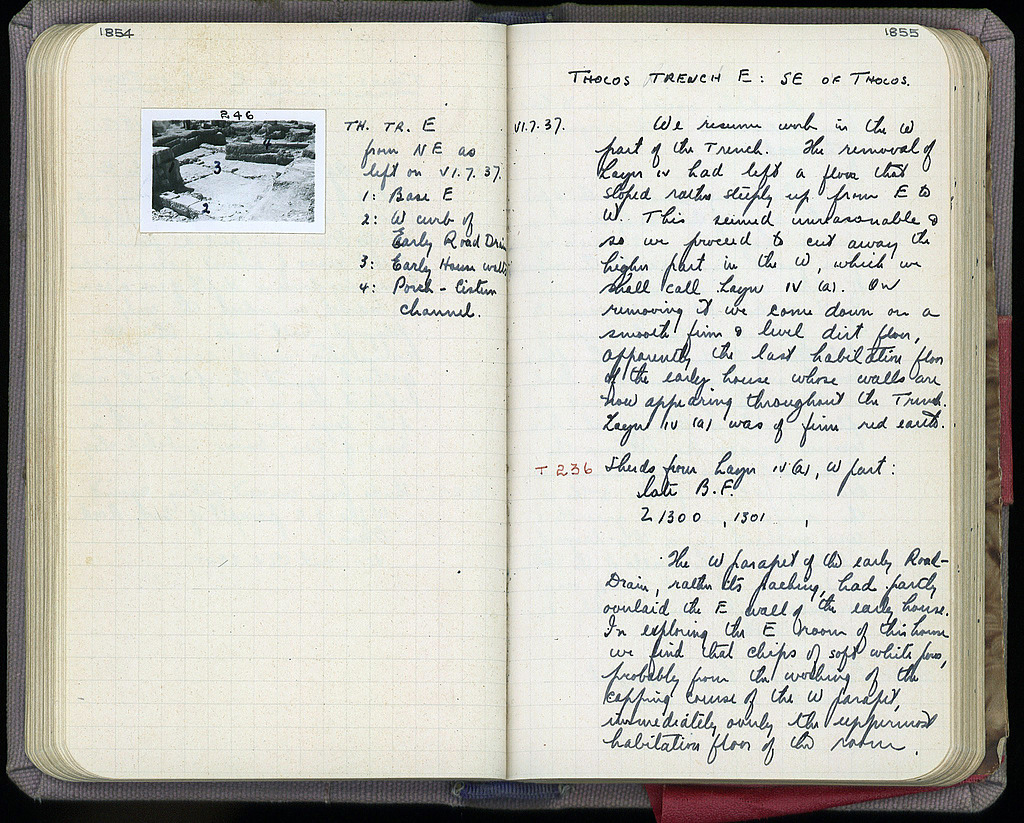 1854
246
3
2
TH. TR. E
from NE as
left on VI.7.37.
1: Base E
2: W curb of
Early Road Drain
3: Early House walls
4: Porch - Cistern
channel.
1855
THOLOS TRENCH E: SE OF THOLOS.
VI.7.37. We resume work in the W
part of the Trench. The removal of
Layer IV had left a floor that
sloped rather steeply up from E to
W. This seemed unreasonable &
so we proceed to cut away the
higher part in the W, which we
shall call Layer IV (a). On
removing it we come down on a
smooth firm & level dirt floor,
apparently the last habitation floor
of the early house whose walls are
now appearing throughout the Trench.
Layer IV (a) was of firm red earth.
T 236 Sherds from Layer IV (a), W part:
late B.F.
Σ 1300 , 1301 ,
The W parapet of the early Road-
Drain, rather its packing, had partly
overlaid the E wall of the early house.
In exploring the E room of this house
we find that chips of soft white poros,
probably from the working of the
capping course of the W parapet,
immediately overly the uppermost
habitation floor of the room.